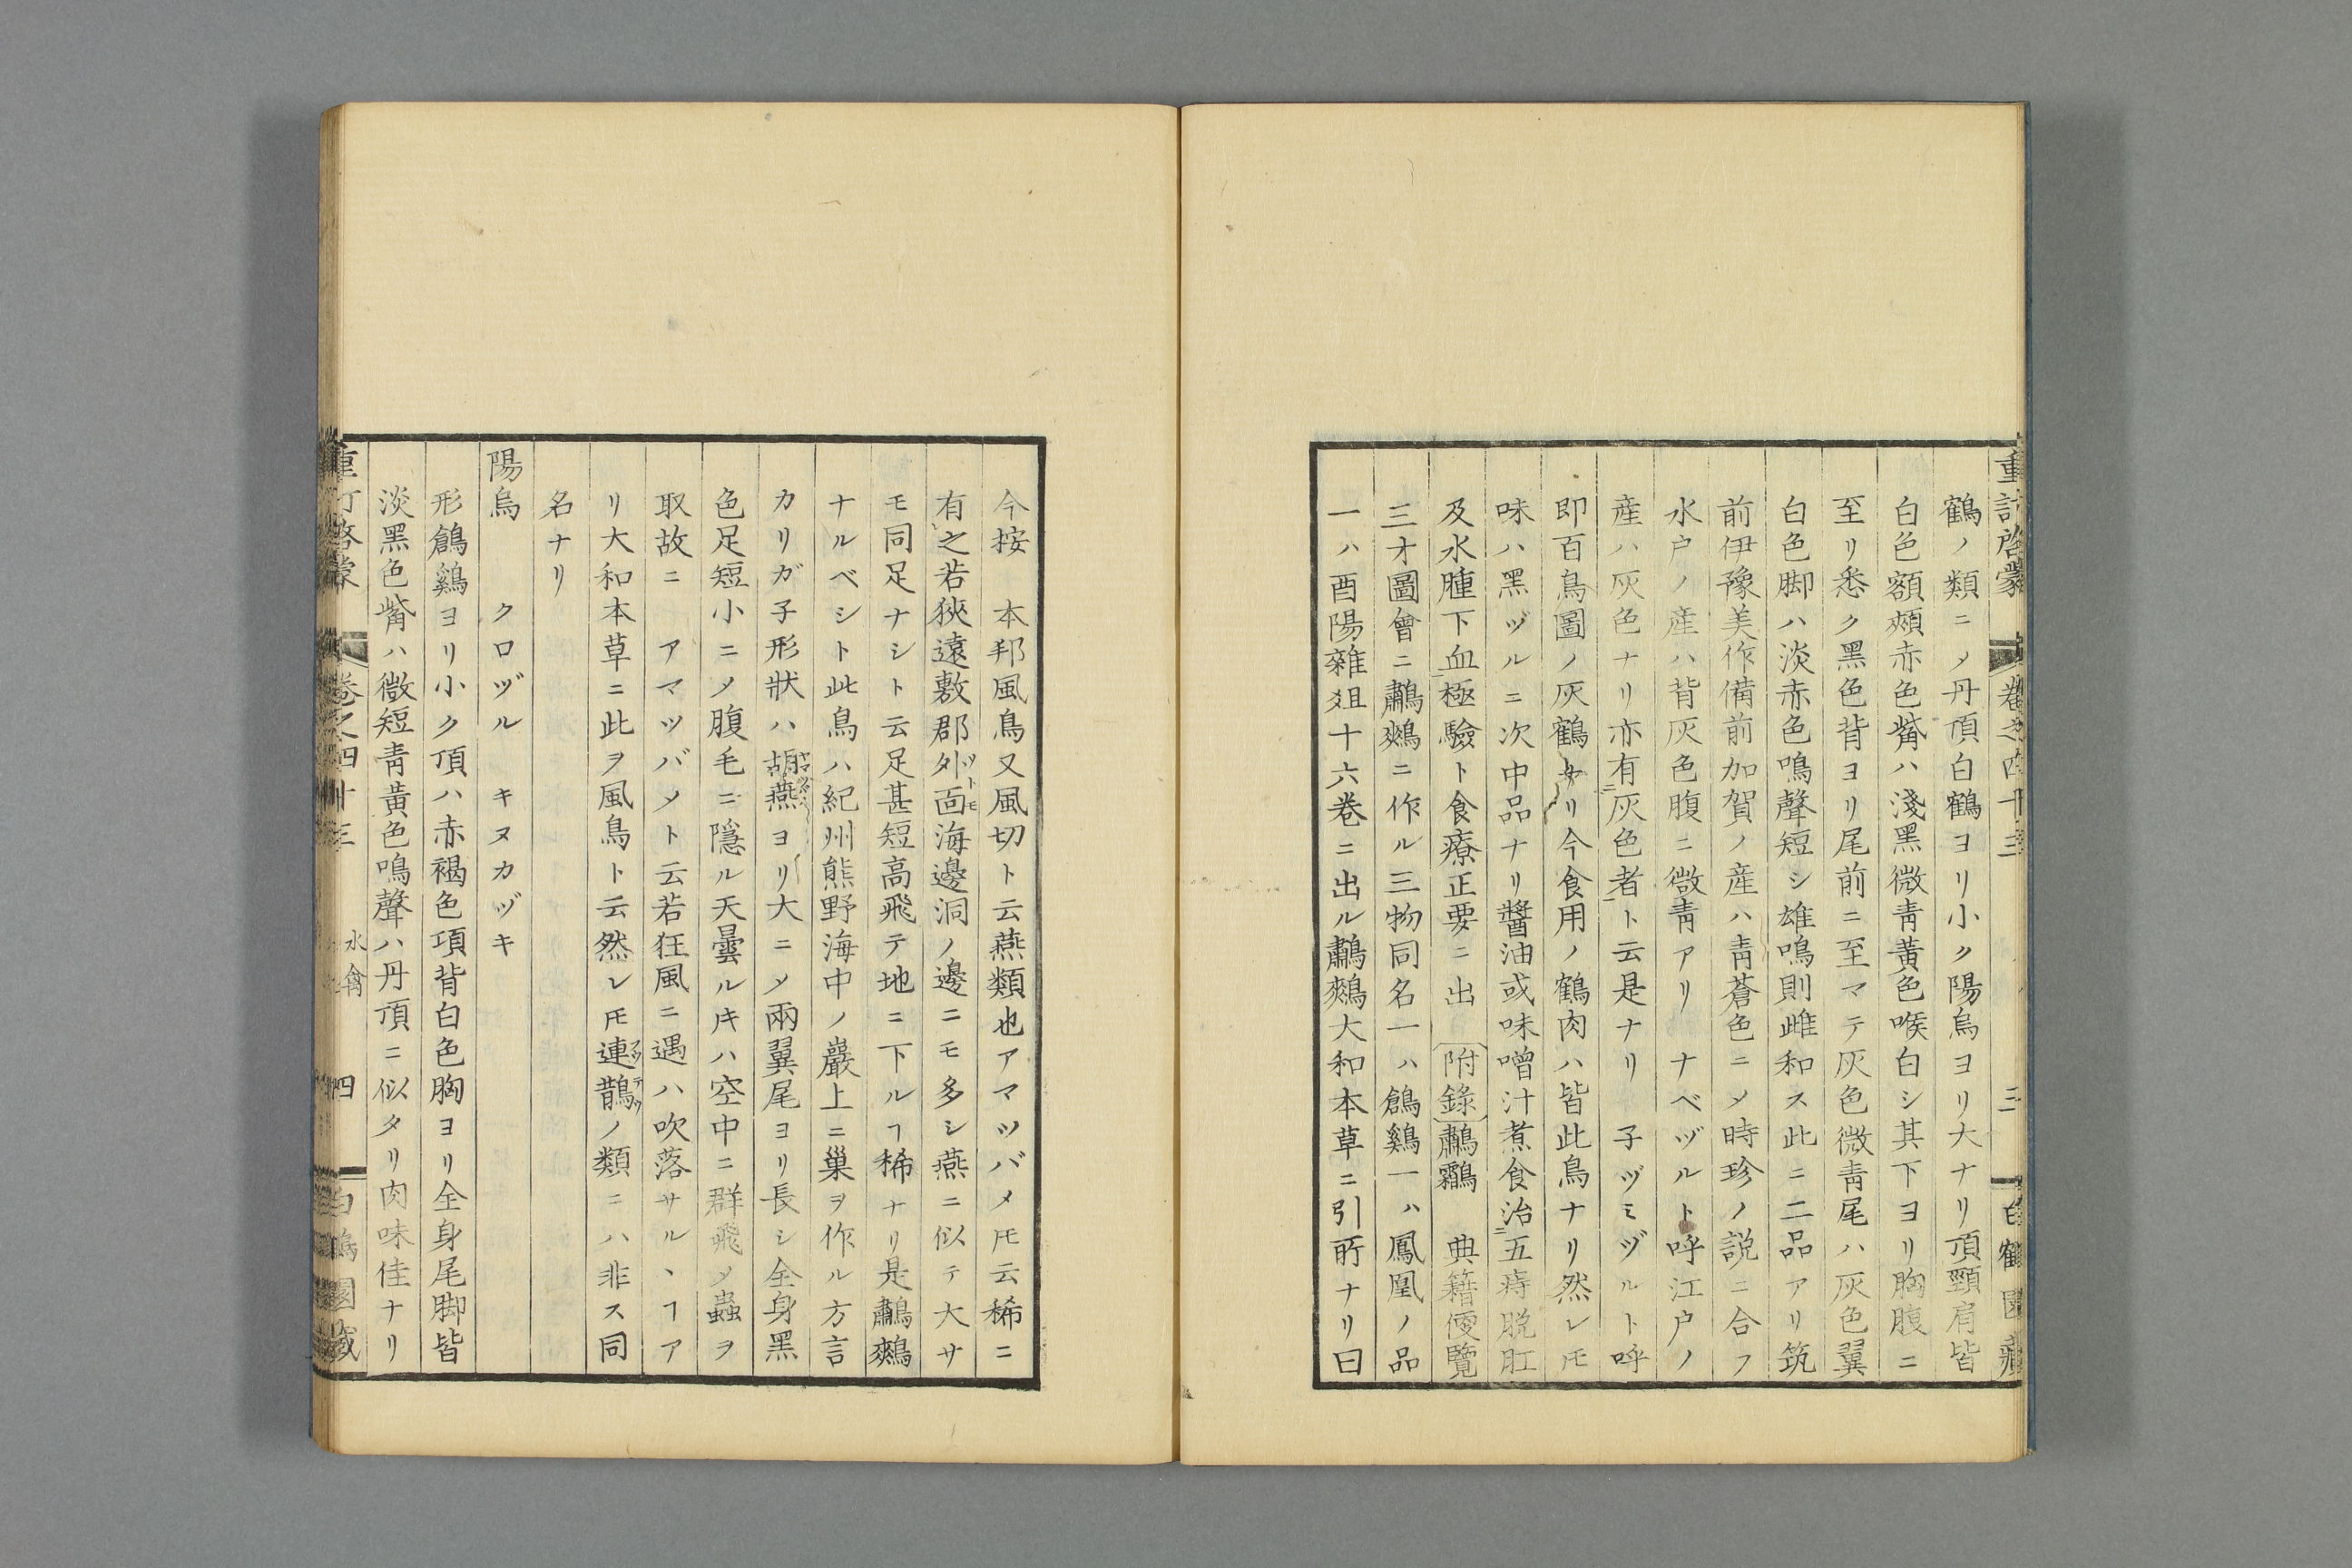 鶴ノ類ニノ丹頂白鶴ヨリ小ク陽烏ヨリ大ナリ頂頸肩皆
白色額頰赤色觜ハ淺黑微靑黃色喉白シ其下ヨリ胸腹ニ
至リ悉ク黑色背ヨリ尾前ニ至マテ灰色微靑尾ハ灰色翼
白色脚ハ淡赤色鳴聲短シ雄鳴則雌和ス此ニ二品アリ筑
前伊豫美作備前加賀ノ産ハ靑蒼色ニノ時珍ノ説ニ合フ
水戸ノ産ハ背灰色腹ニ微靑アリ ナベヅルト呼江戸ノ
産ハ灰色ナリ亦有灰色者ト云是ナリ 子ヅミヅルト呼
即百鳥圖ノ灰鶴ナリ今食用ノ鶴肉ハ皆此鳥ナリ然レ𪜈
味ハ黑ヅルニ次中品ナリ醬油或味噌汁煮食治五痔脱肛
及水腫下血極驗ト食療正要ニ出 附錄鷫鸘 典籍便覽
三才圖會ニ鷫鷞ニ作ル三物同名一ハ鶬鷄一ハ鳳凰ノ品
一ハ酉陽雜俎十六卷ニ出ル鷫鷞大和本草ニ引所ナリ曰
重訂啓蒙 卷之四十三 三 白鶴園藏
今按 本邦風鳥又風切ト云燕類也アマツバメ𪜈云稀ニ
有之若狹遠敷郡外面ソトモ海邊洞ノ邊ニモ多シ燕ニ似テ大サ
モ同足ナシト云足甚短高飛テ地ニ下ルヿ稀ナリ是鷫鷞
ナルベシト此鳥ハ紀州熊野海中ノ巖上ニ巢ヲ作ル方言
カリガ子形狀ハ胡燕ヨリ大ニノ兩翼尾ヨリ長シ全身黑
色足短小ニノ腹毛ニ隱ル天曇ル𪜈ハ空中ニ群飛ノ蟲ヲ
取故ニ アマツバメト云若狂風ニ遇ハ吹落サルヽヿア
リ大和本草ニ此ヲ風鳥ト云然レ𪜈連鵲ノ類ニハ非ス同
名ナリ
陽烏 クロヅル キヌカヅキ
形鶬鷄ヨリ小ク頂ハ赤褐色項背白色胸ヨリ全身尾脚皆
淡黑色觜ハ微短靑黃色鳴聲ハ丹頂ニ似タリ肉味佳ナリ
重訂啓蒙 卷之四十三 水禽 四 白鶴園藏